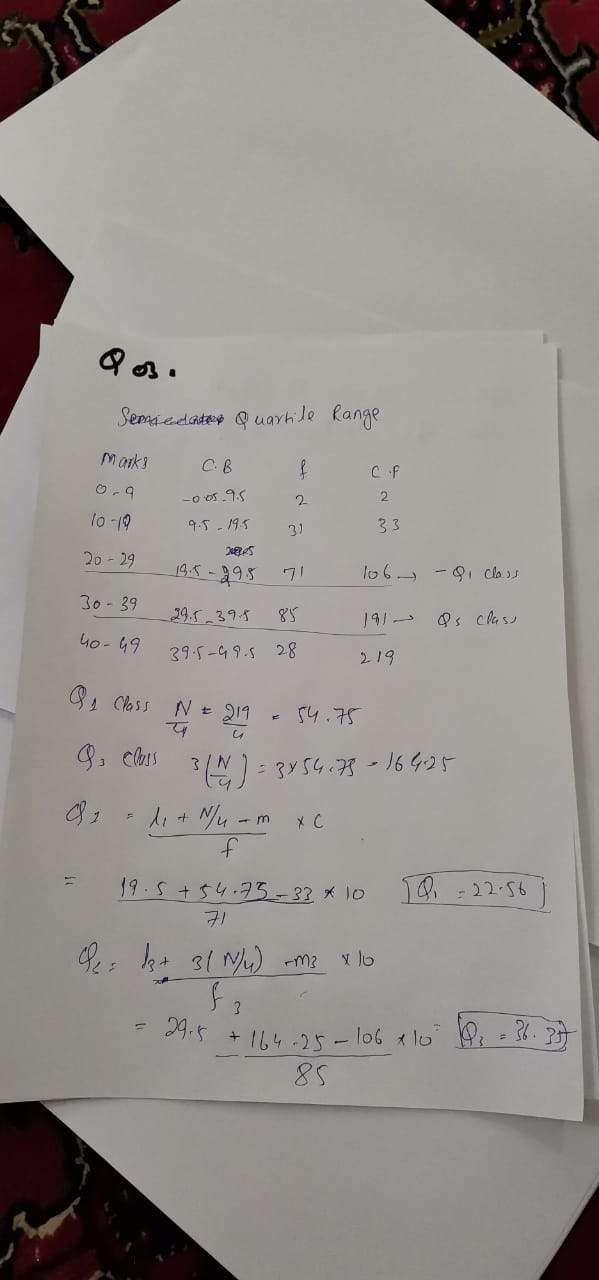 Q 03.
Quartile Range
Marks C.B f C.F
0-9 -0.05-9.5 2 2
10-19 9.5-19.5 31 33
20-29 19.5-29.5 71 106 → - Q1 class
30-39 29.5-39.5 85 191 → Q3 class
40-49 39.5-49.5 28 219
Q1 Class N/4 = 219/4 = 54.75
Q3 class 3(N/4) = 3×54.75 = 164.25
Q1 = l1 + N/4 - m × C
f
= 19.5 + 54.75 - 33 × 10 Q1 = 22.56
71
l3 + 3(N/4) - m3 × 10
f3
= 29.5 + 164.25 - 106 × 10 = Q3 = 36.35
85